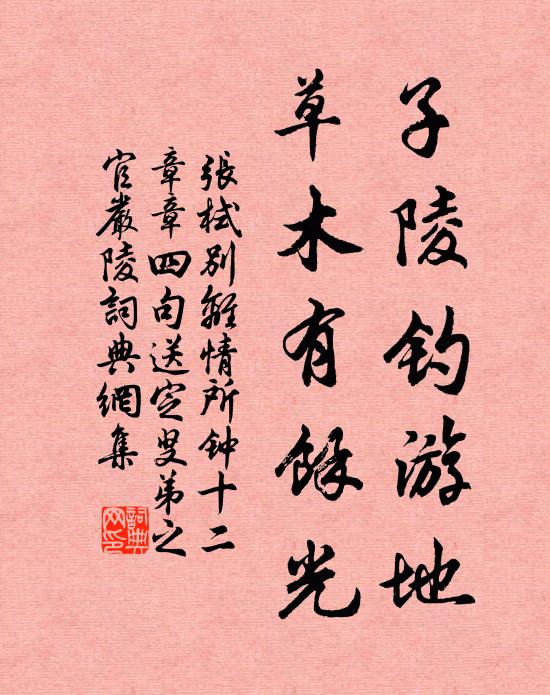 子陵钓游地
草木有餘光
張栻别離情所钟十二
章章四句送定叟弟之
官嚴陵詞典網集
詞典
网印